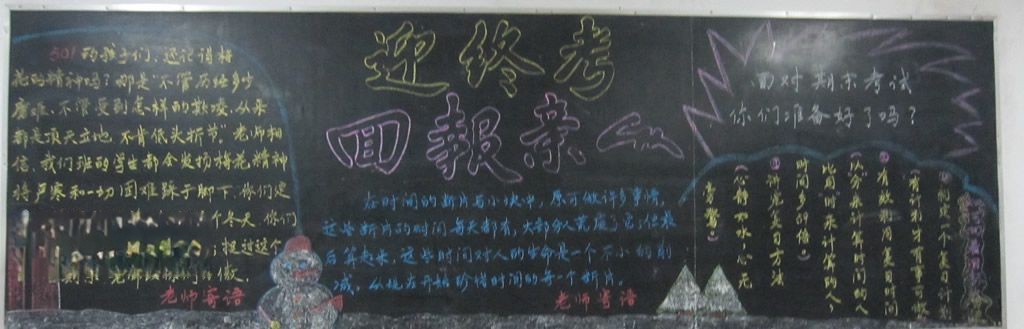 迎终考
回報亲
501的孩子们,还记得梅
花的精神吗?那是"不管历经多少
磨难、不管受到怎样的欺凌,从来
都是顶天立地,不肯低头折节"老师相
信,我们班的学生都会发扬梅花精神
将严寒和一切困难踩于脚下.你们定
个冬天 你们
老师寄语
在时间的断片与小块中,原可做许多事情,
这些断片的时间每天都有,大部分人荒废了它,但最
后算起来,这些时间对人的生命是一个不小的削
减,从现在开始珍惜时间的每一个断片。
老师寄语
面对期末考试
你们准备好了吗?
①制定一个复习计划
(有计划才有事可做)
②有效利用复习时间
(以分来计算时间的人
比用时来计算的人,
时间多59倍)
③讲究复习方法
(心静如水,心无
旁骛)